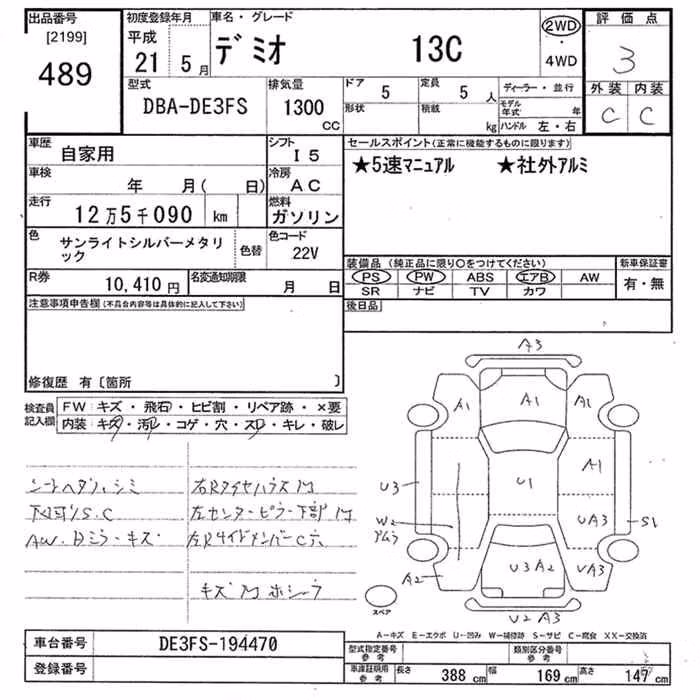 出品番号
[2199]
489
初度登録年月
平成
21 5月
車名・グレード
デミオ 13C
2WD
4WD
評価点
3
外装 内装
C C
型式
DBA-DE3FS
排気量
1300
CC
ドア 5
形状
定員 5 人
積載 kg
ディーラー・並行
モデル年式 年
ハンドル 左・右
車歴 自家用
シフト I5
車検 年 月( 日)
冷房 AC
走行 12万5千090 km
燃料 ガソリン
色 サンライトシルバーメタリック
色替
色コード 22V
R券 10,410円
名変通知期限 月 日
セールスポイント(正常に機能するものに限ります)
★5速マニュアル ★社外アルミ
装備品(純正品に限り○をつけてください)
PS PW ABS エアB AW
SR ナビ TV カワ
新車保証書
有・無
後日品
注意事項申告欄(不具合内容等は具体的に記入して下さい)
修復歴 有〔箇所 〕
検査員記入欄
FW キズ・飛石・ヒビ割・リペア跡・×要
内装 キズ・汚レ・コゲ・穴・スレ・キレ・破レ
下回りS.C
AW.Dミラーキズ
左センターピラー下部
左Rサイドメンバー C穴
A3
A1 A1 A1
A1
U3
U1
W2
UA3
S1
A2
U3 A2
UA3
U2 A3
スペア
A-キズ E-エクボ U-凹み W-補修跡 S-サビ C-腐食 XX-交換済
車台番号 DE3FS-194470
登録番号
型式指定番号 参考
類別区分番号 参考
車庫証明用 参考
長さ 388 cm 幅 169 cm 高さ 147 cm